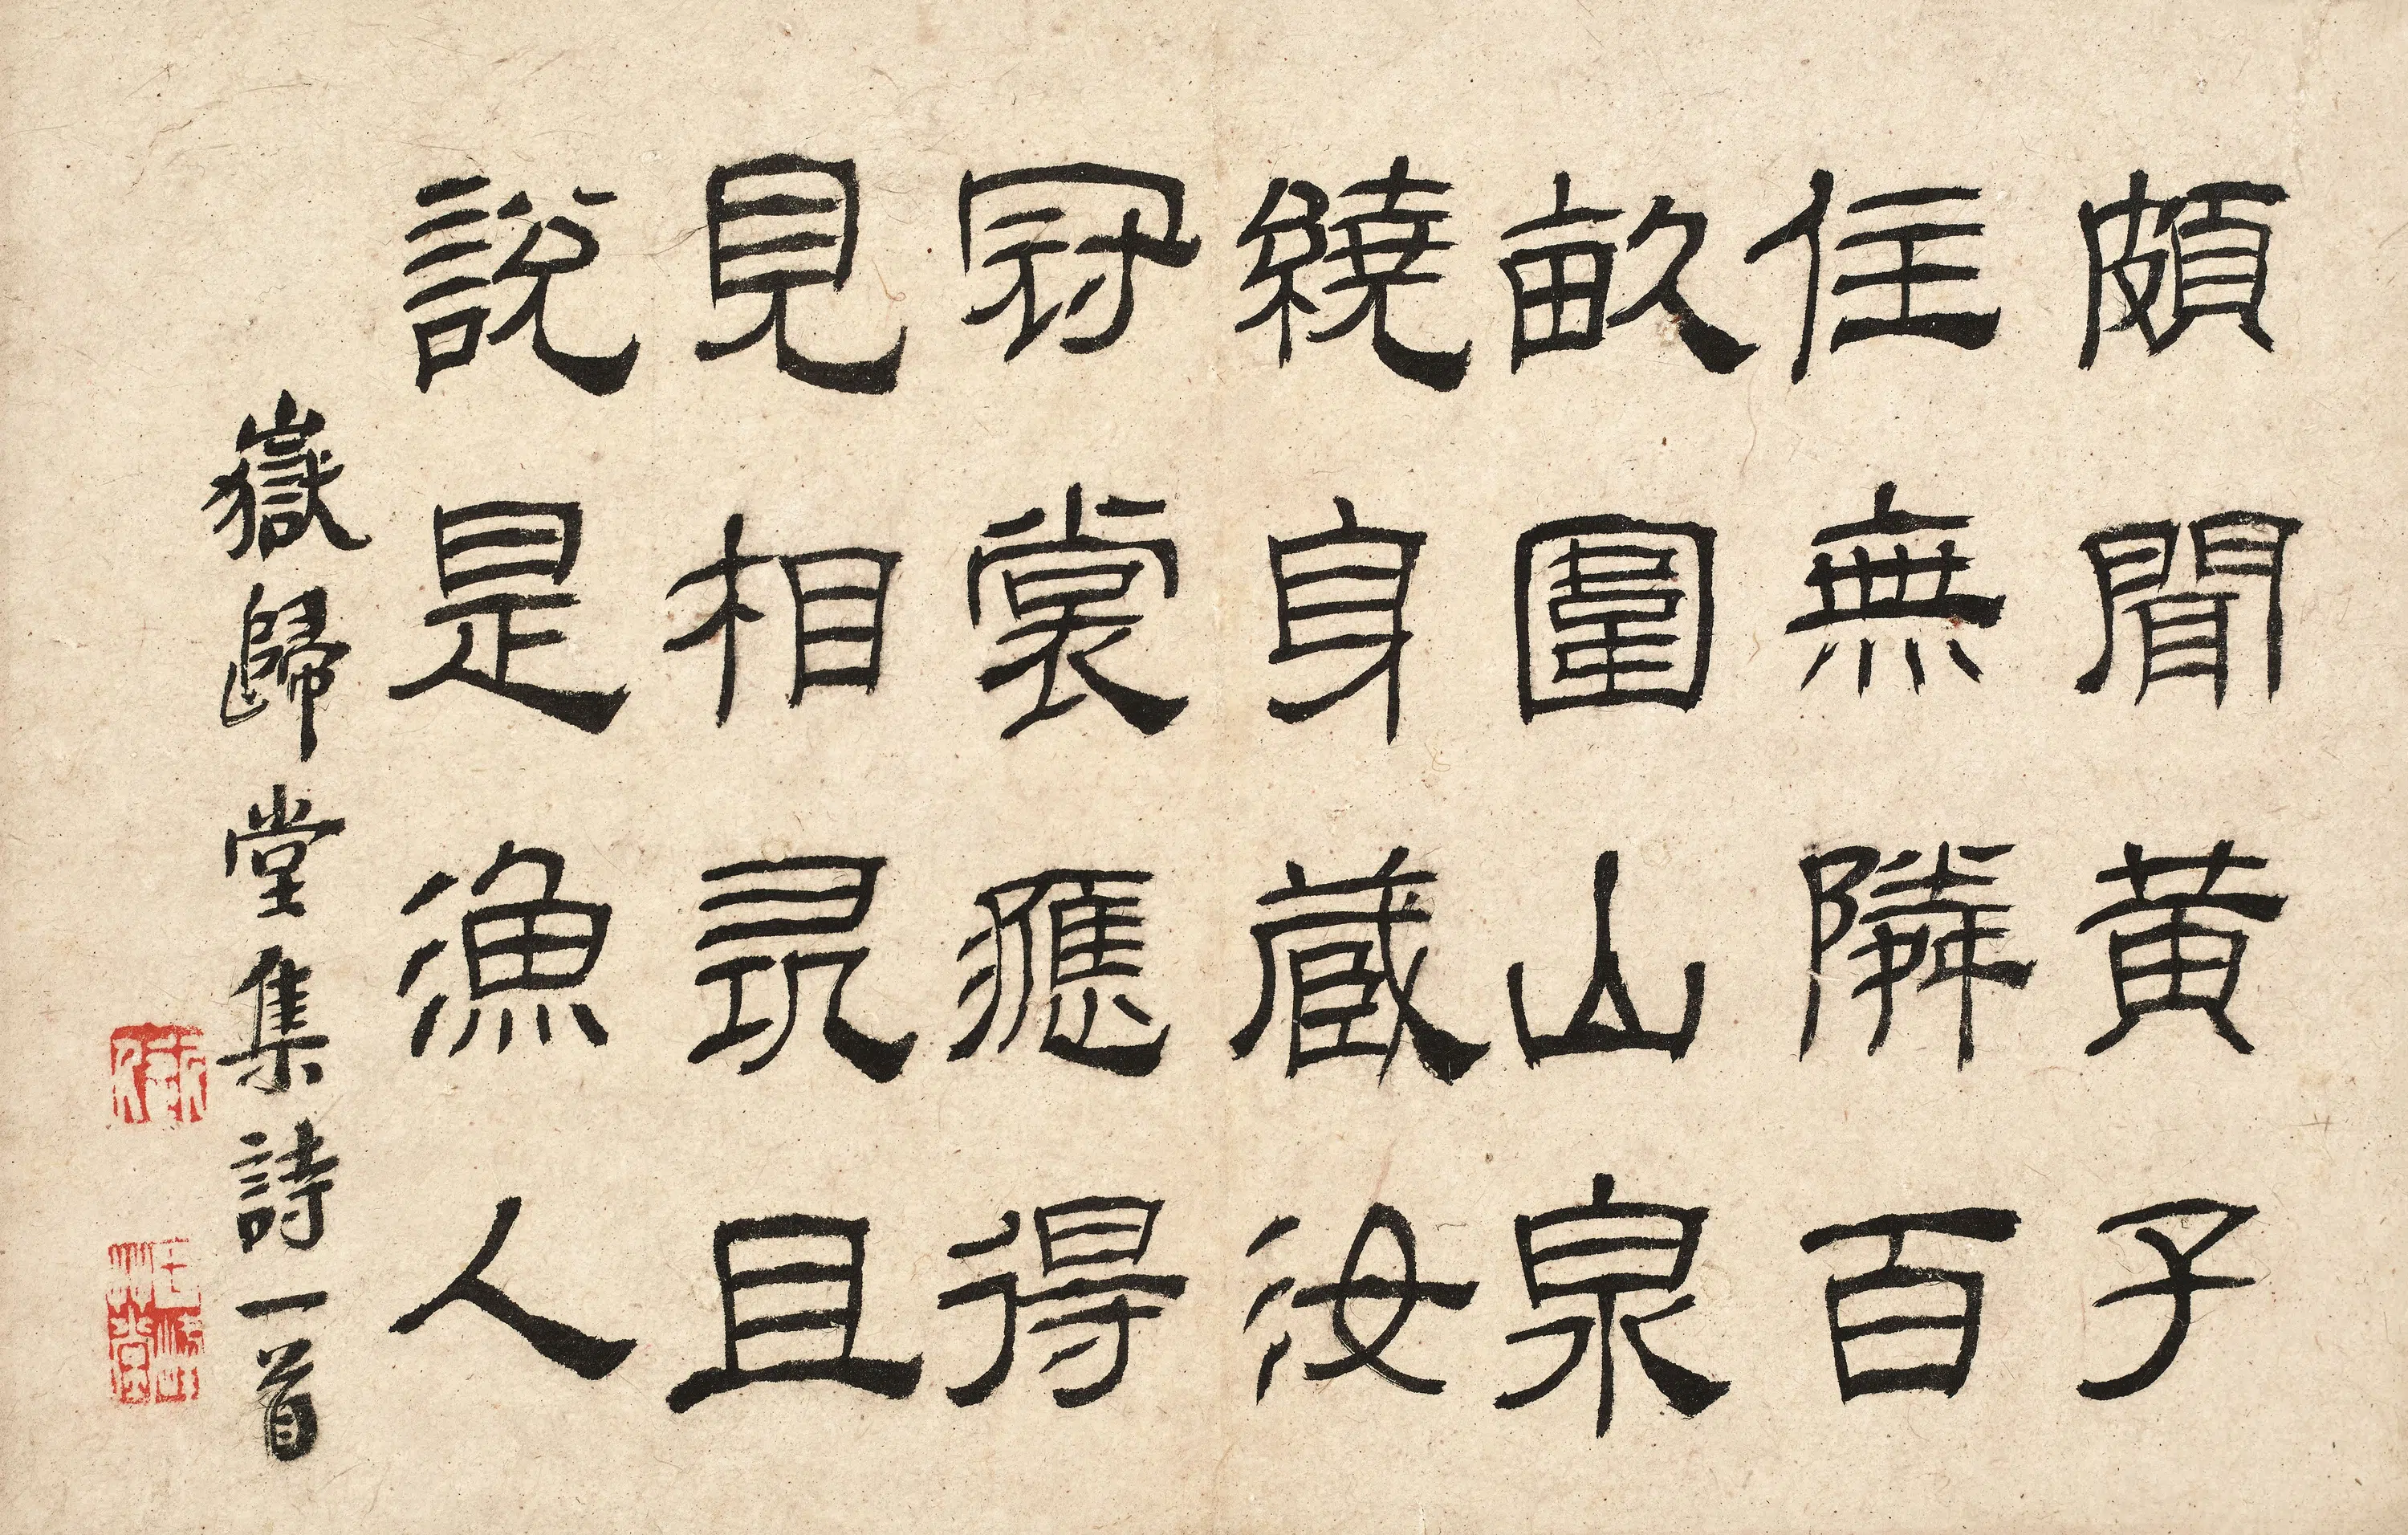 頗聞黄子
住無隣百
畝園山泉
繞身藏汝
冠裳應得
見相尋且
說是漁人
嶽歸堂集詩一首